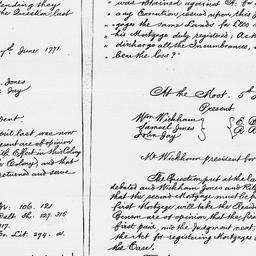 tending they
the Question last
7th June 1771.
Jones
Jay
ent.
last was now
present are of opinion
with Effect in this Colony
Colony, and that
returned and save
106. 121
227. 316
317.
Co. Lit. 294. a.
" was obtained against A. for
" any Execution issued upon this J
" gages the same Lands for £100
" his Mortgage duly registered; A.
" discharge all the Incumbrances,
" Bear the loss?"
At the Moot. 5th
Present
Wm Wickham
Samuel Jones
John Jay
Mr Wickham president for
The Question put at the la
debated and Wickham Jones and
that the second Mortgage must be
first Mortgage will take the
Benson are of opinion, that the fir
first paid, viz the Judgment next,
the Act for registering Mortgages
the Case.